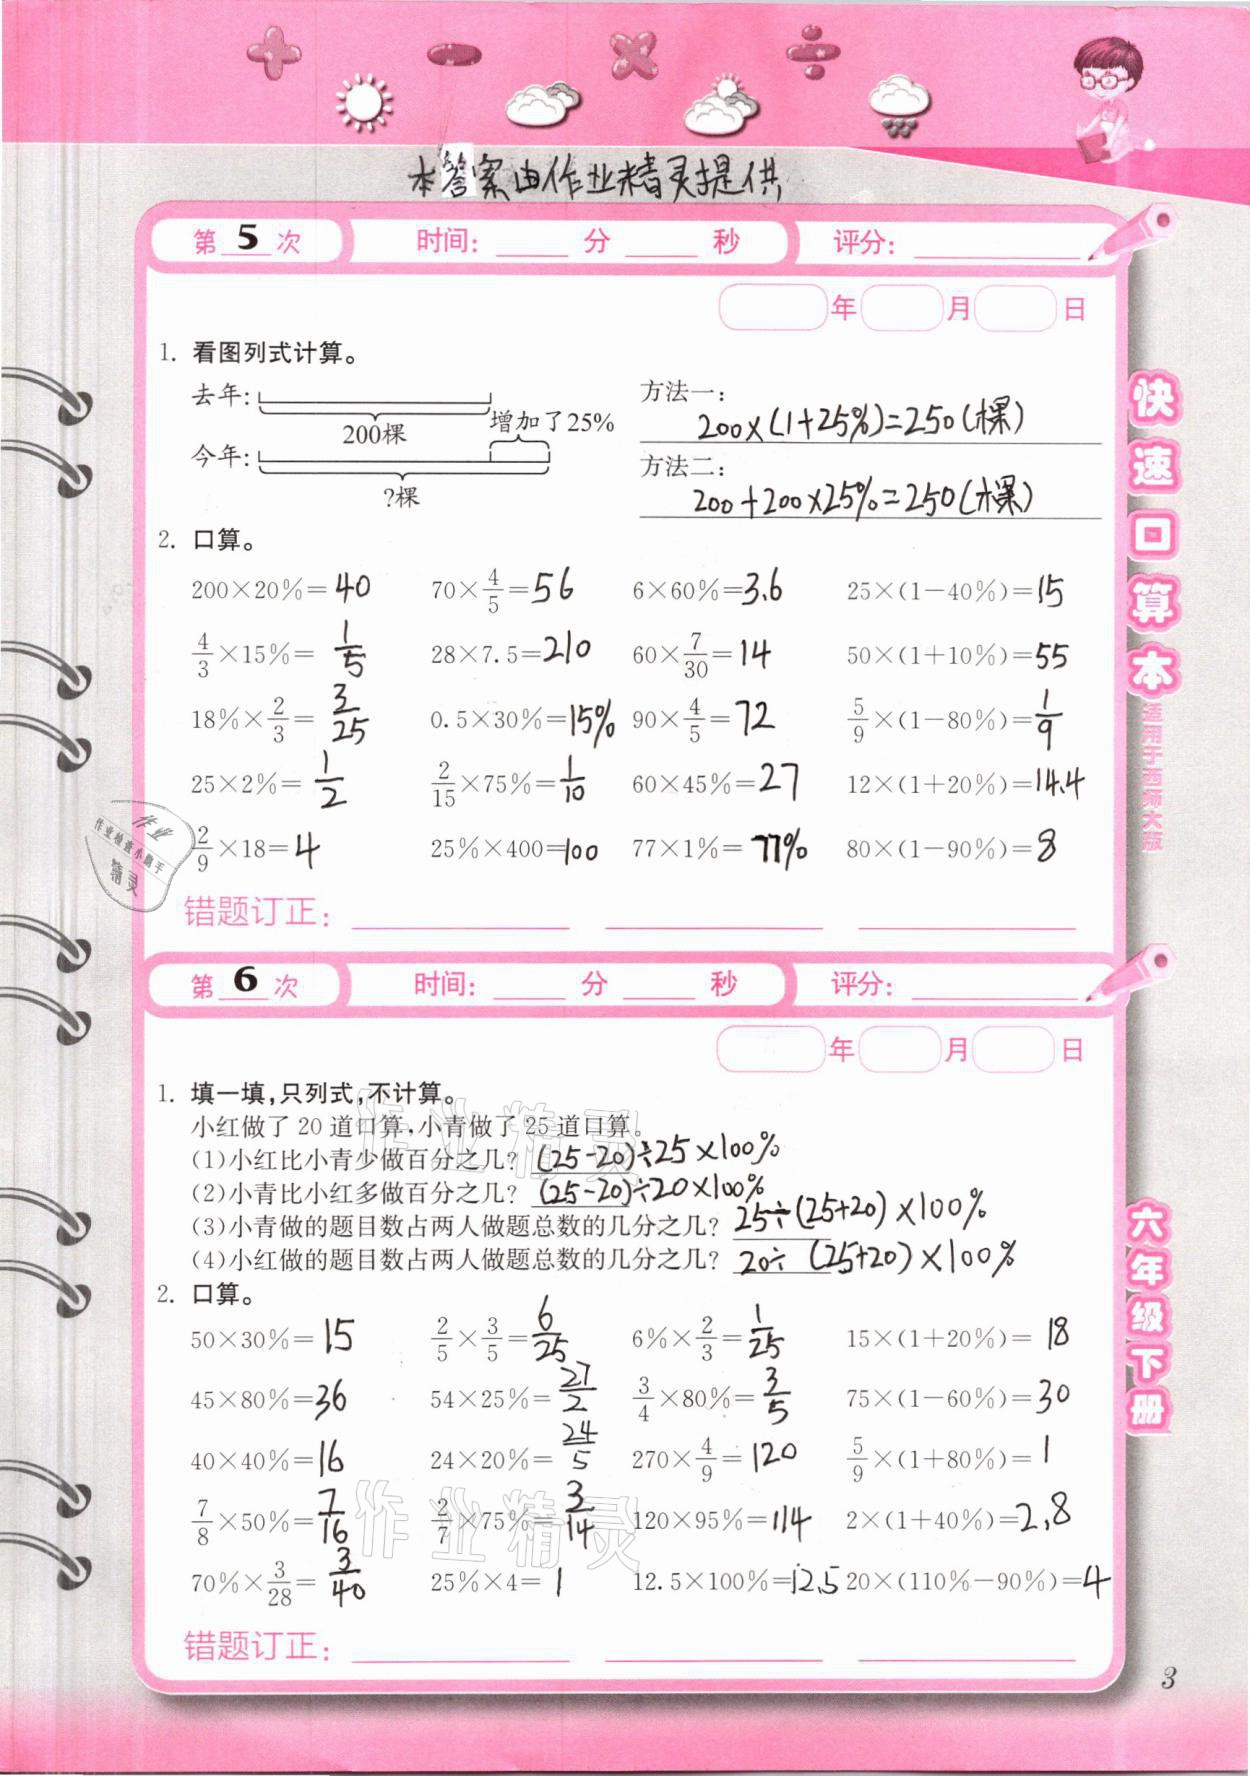 本答案由作业精灵提供
第 5 次 时间: ____ 分 ____ 秒 评分: ________
年 月 日
1. 看图列式计算。
去年:
200棵
增加了25%
今年:
?棵
方法一:
200×(1+25%)=250(棵)
方法二:
200+200×25%=250(棵)
2. 口算。
200×20%=40 70×4/5=56 6×60%=3.6 25×(1-40%)=15
4/3×15%=1/5 28×7.5=210 60×7/30=14 50×(1+10%)=55
18%×2/3=3/25 0.5×30%=15% 90×4/5=72 5/9×(1-80%)=1/9
25×2%=1/2 2/15×75%=1/10 60×45%=27 12×(1+20%)=14.4
2/9×18=4 25%×400=100 77×1%=77% 80×(1-90%)=8
错题订正: ________ ________ ________
第 6 次 时间: ____ 分 ____ 秒 评分: ________
年 月 日
1. 填一填,只列式,不计算。
小红做了 20 道口算,小青做了 25 道口算。
(1)小红比小青少做百分之几? (25-20)÷25×100%
(2)小青比小红多做百分之几? (25-20)÷20×100%
(3)小青做的题目数占两人做题总数的几分之几? 25÷(25+20)×100%
(4)小红做的题目数占两人做题总数的几分之几? 20÷(25+20)×100%
2. 口算。
50×30%=15 2/5×3/5=6/25 6%×2/3=1/25 15×(1+20%)=18
45×80%=36 54×25%=27/2 3/4×80%=3/5 75×(1-60%)=30
40×40%=16 24×20%=24/5 270×4/9=120 5/9×(1+80%)=1
7/8×50%=7/16 2/7×75%=3/14 120×95%=114 2×(1+40%)=2.8
70%×3/28=3/40 25%×4=1 12.5×100%=12.5 20×(110%-90%)=4
错题订正: ________ ________ ________
快速口算本
适用于西师大版
六年级下册
3
作业
作业检查小助手
精灵
作业精灵
作业精灵